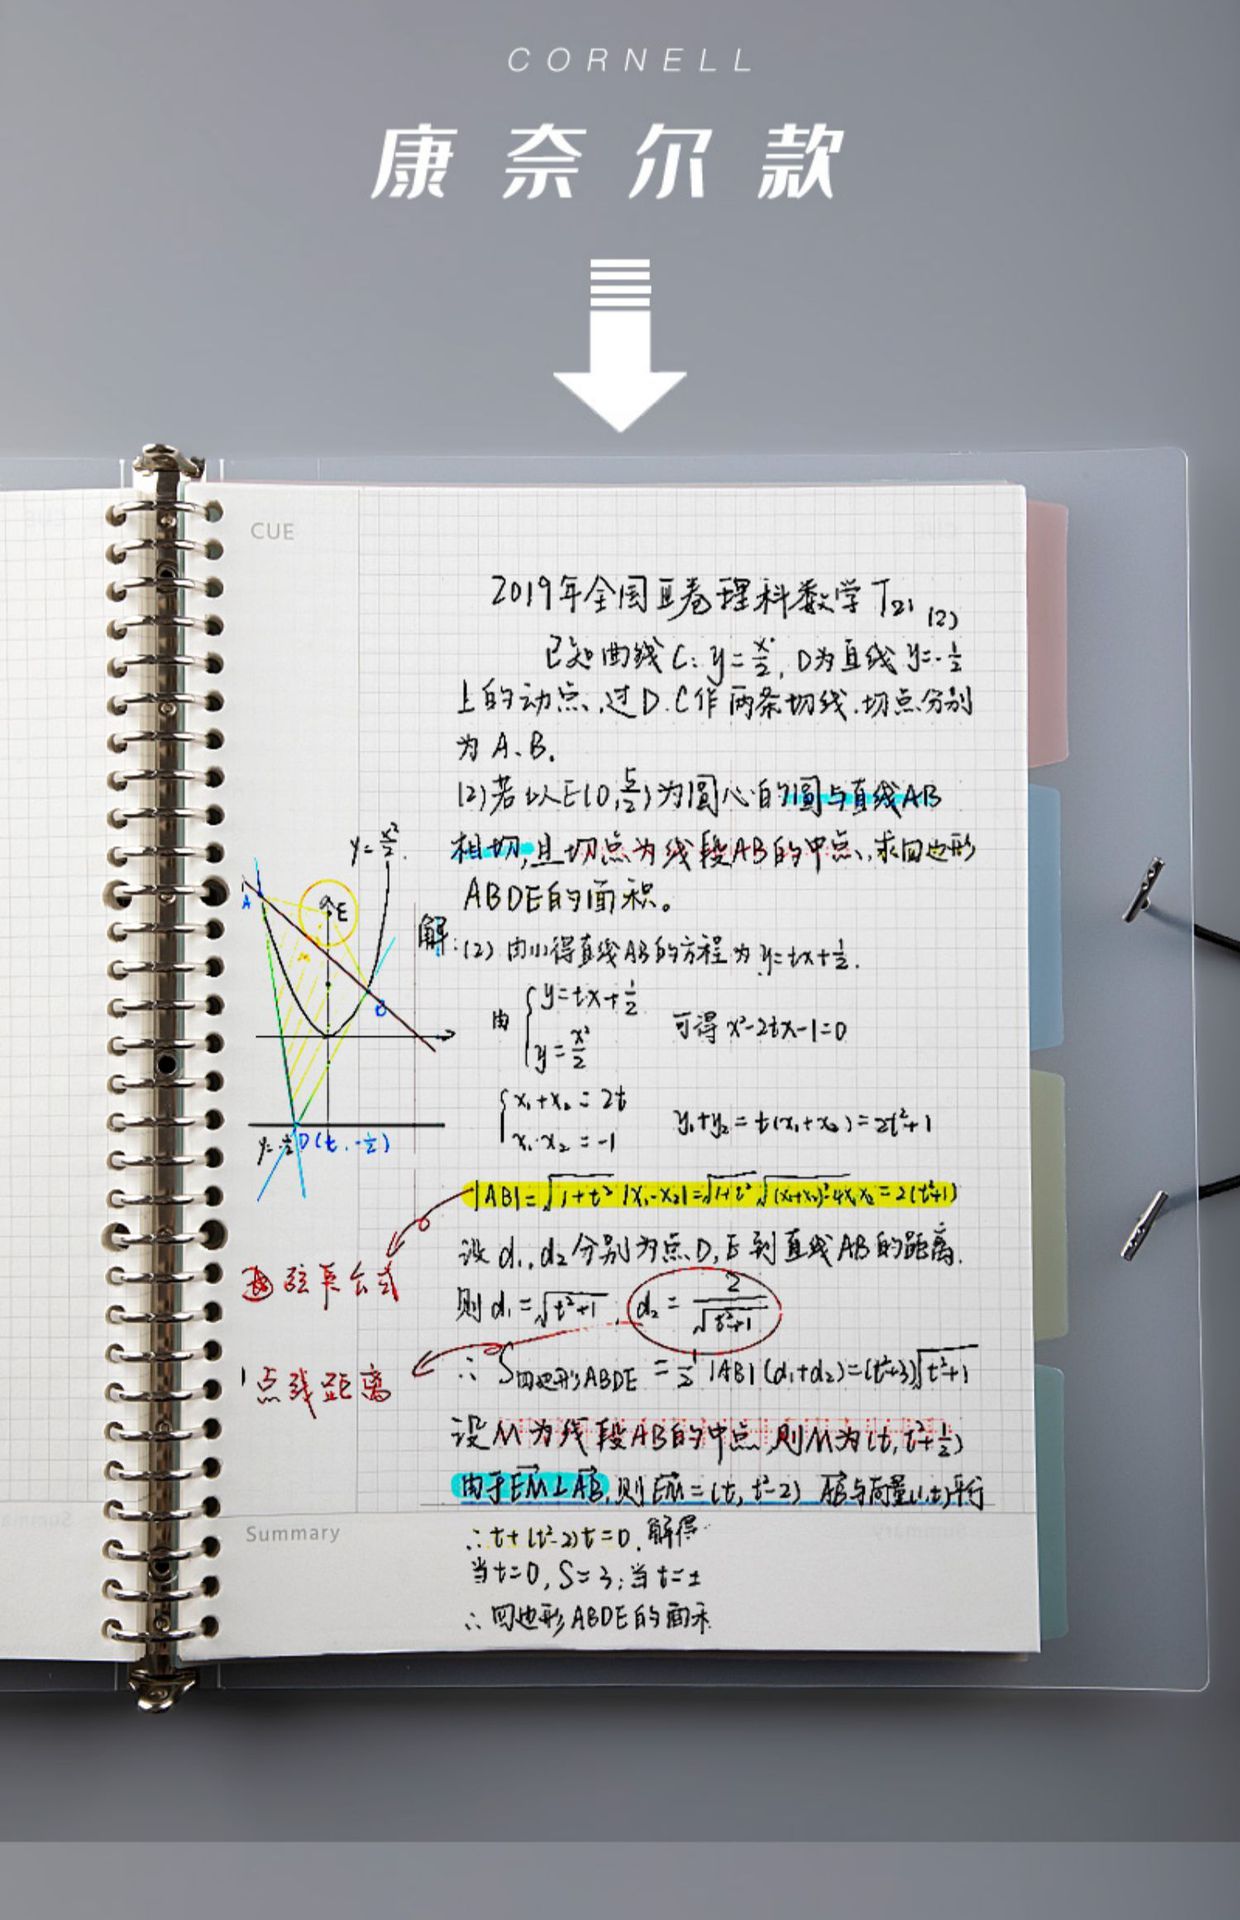 CORNELL
康奈尔款
CUE
2019年全国Ⅲ卷理科数学T21 (2)
已知曲线C: y=x²/2, D为直线y=-1/2
上的动点,过D.C作两条切线.切点分别
为A、B.
(2)若以E(0,5/2)为圆心的圆与直线AB
相切,且切点为线段AB的中点,求四边形
ABDE的面积。
y=x²/2.
A
E
M
B
y=-1/2
D(t,-1/2)
解:(2)由(1)得直线AB的方程为y=tx+1/2.
由{y=tx+1/2
y=x²/2
可得x²-2tx-1=0
{x₁+x₂=2t
x₁·x₂=-1
y₁+y₂=t(x₁+x₂)=2t²+1
|AB|=√1+t² |x₁-x₂|=√1+t² √(x₁+x₂)²-4x₁x₂=2(t²+1)
设d₁,d₂分别为点D,E到直线AB的距离.
弦 公式
则d₁=√t²+1, d₂=2/√t²+1
点线距离
∴S四边形ABDE=1/2|AB|(d₁+d₂)=(t²+3)√t²+1
设M为线段AB的中点,则M为(t,t²+1/2)
由于EM⊥AB,则EM=(t,t²-2) AB与向量(1,t)平行
Summary
∴t+(t²-2)t=0.解得
当t=0,S=3;当t=±
∴四边形ABDE的面